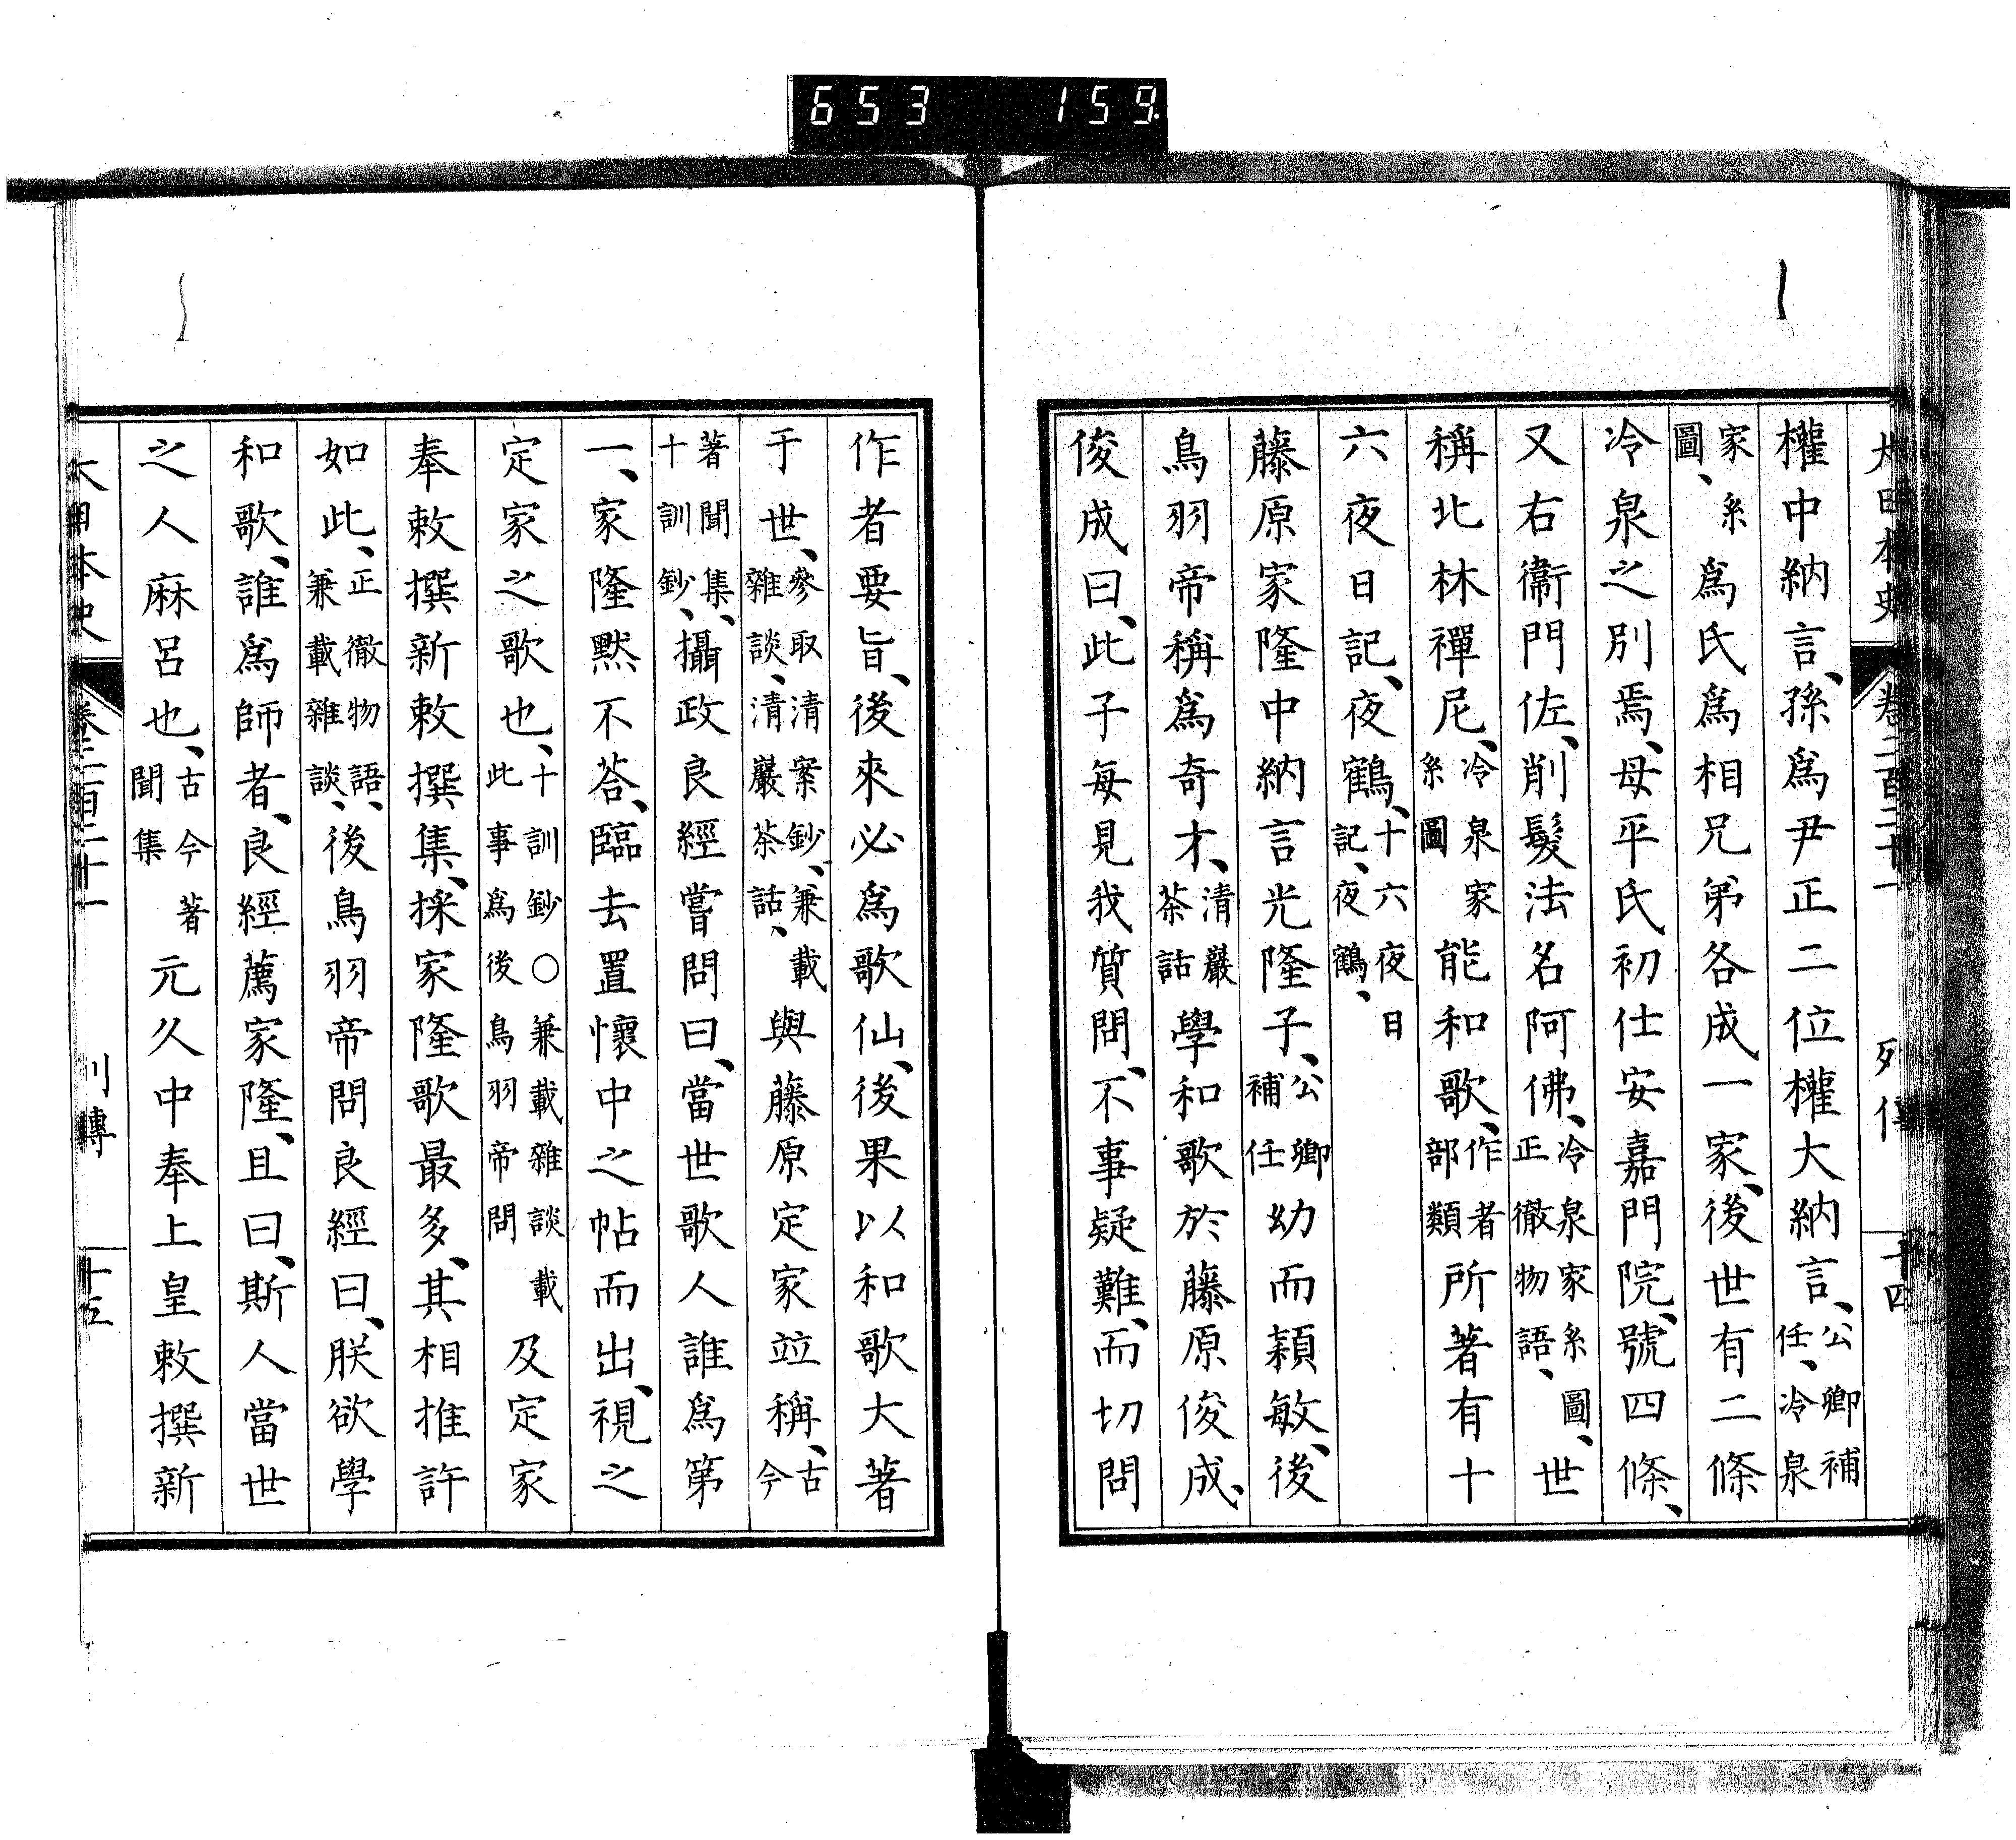 653 159
大日本史 卷二百二十一 列傳 十四
權中納言、孫爲尹正二位權大納言、公卿補任、冷泉
家系圖、爲氏爲相兄弟各成一家、後世有二條
冷泉之別焉、母平氏初仕安嘉門院、號四條、
又右衞門佐、削髮法名阿佛、冷泉家系圖、正徹物語、世
稱北林禪尼、冷泉家系圖能和歌、作者部類所著有十
六夜日記、夜鶴、十六夜日記、夜鶴、
藤原家隆中納言光隆子、公卿補任幼而穎敏、後
鳥羽帝稱爲奇才、清巖茶話學和歌於藤原俊成、
俊成曰、此子每見我質問、不事疑難、而切問
作者要旨、後來必爲歌仙、後果以和歌大著
于世、參取清案鈔、兼載雜談、清巖茶話、與藤原定家竝稱、古今
著聞集、十訓鈔、攝政良經嘗問曰、當世歌人誰爲第
一、家隆默不荅、臨去置懷中之帖而出、視之
定家之歌也、十訓鈔○兼載雜談載此事爲後鳥羽帝問及定家
奉敕撰新敕撰集、採家隆歌最多、其相推許
如此、正徹物語、兼載雜談、後鳥羽帝問良經曰、朕欲學
和歌、誰爲師者、良經薦家隆、且曰、斯人當世
之人麻呂也、古今著聞集元久中奉上皇敕撰新
大日本史 卷二百二十一 列傳 十五